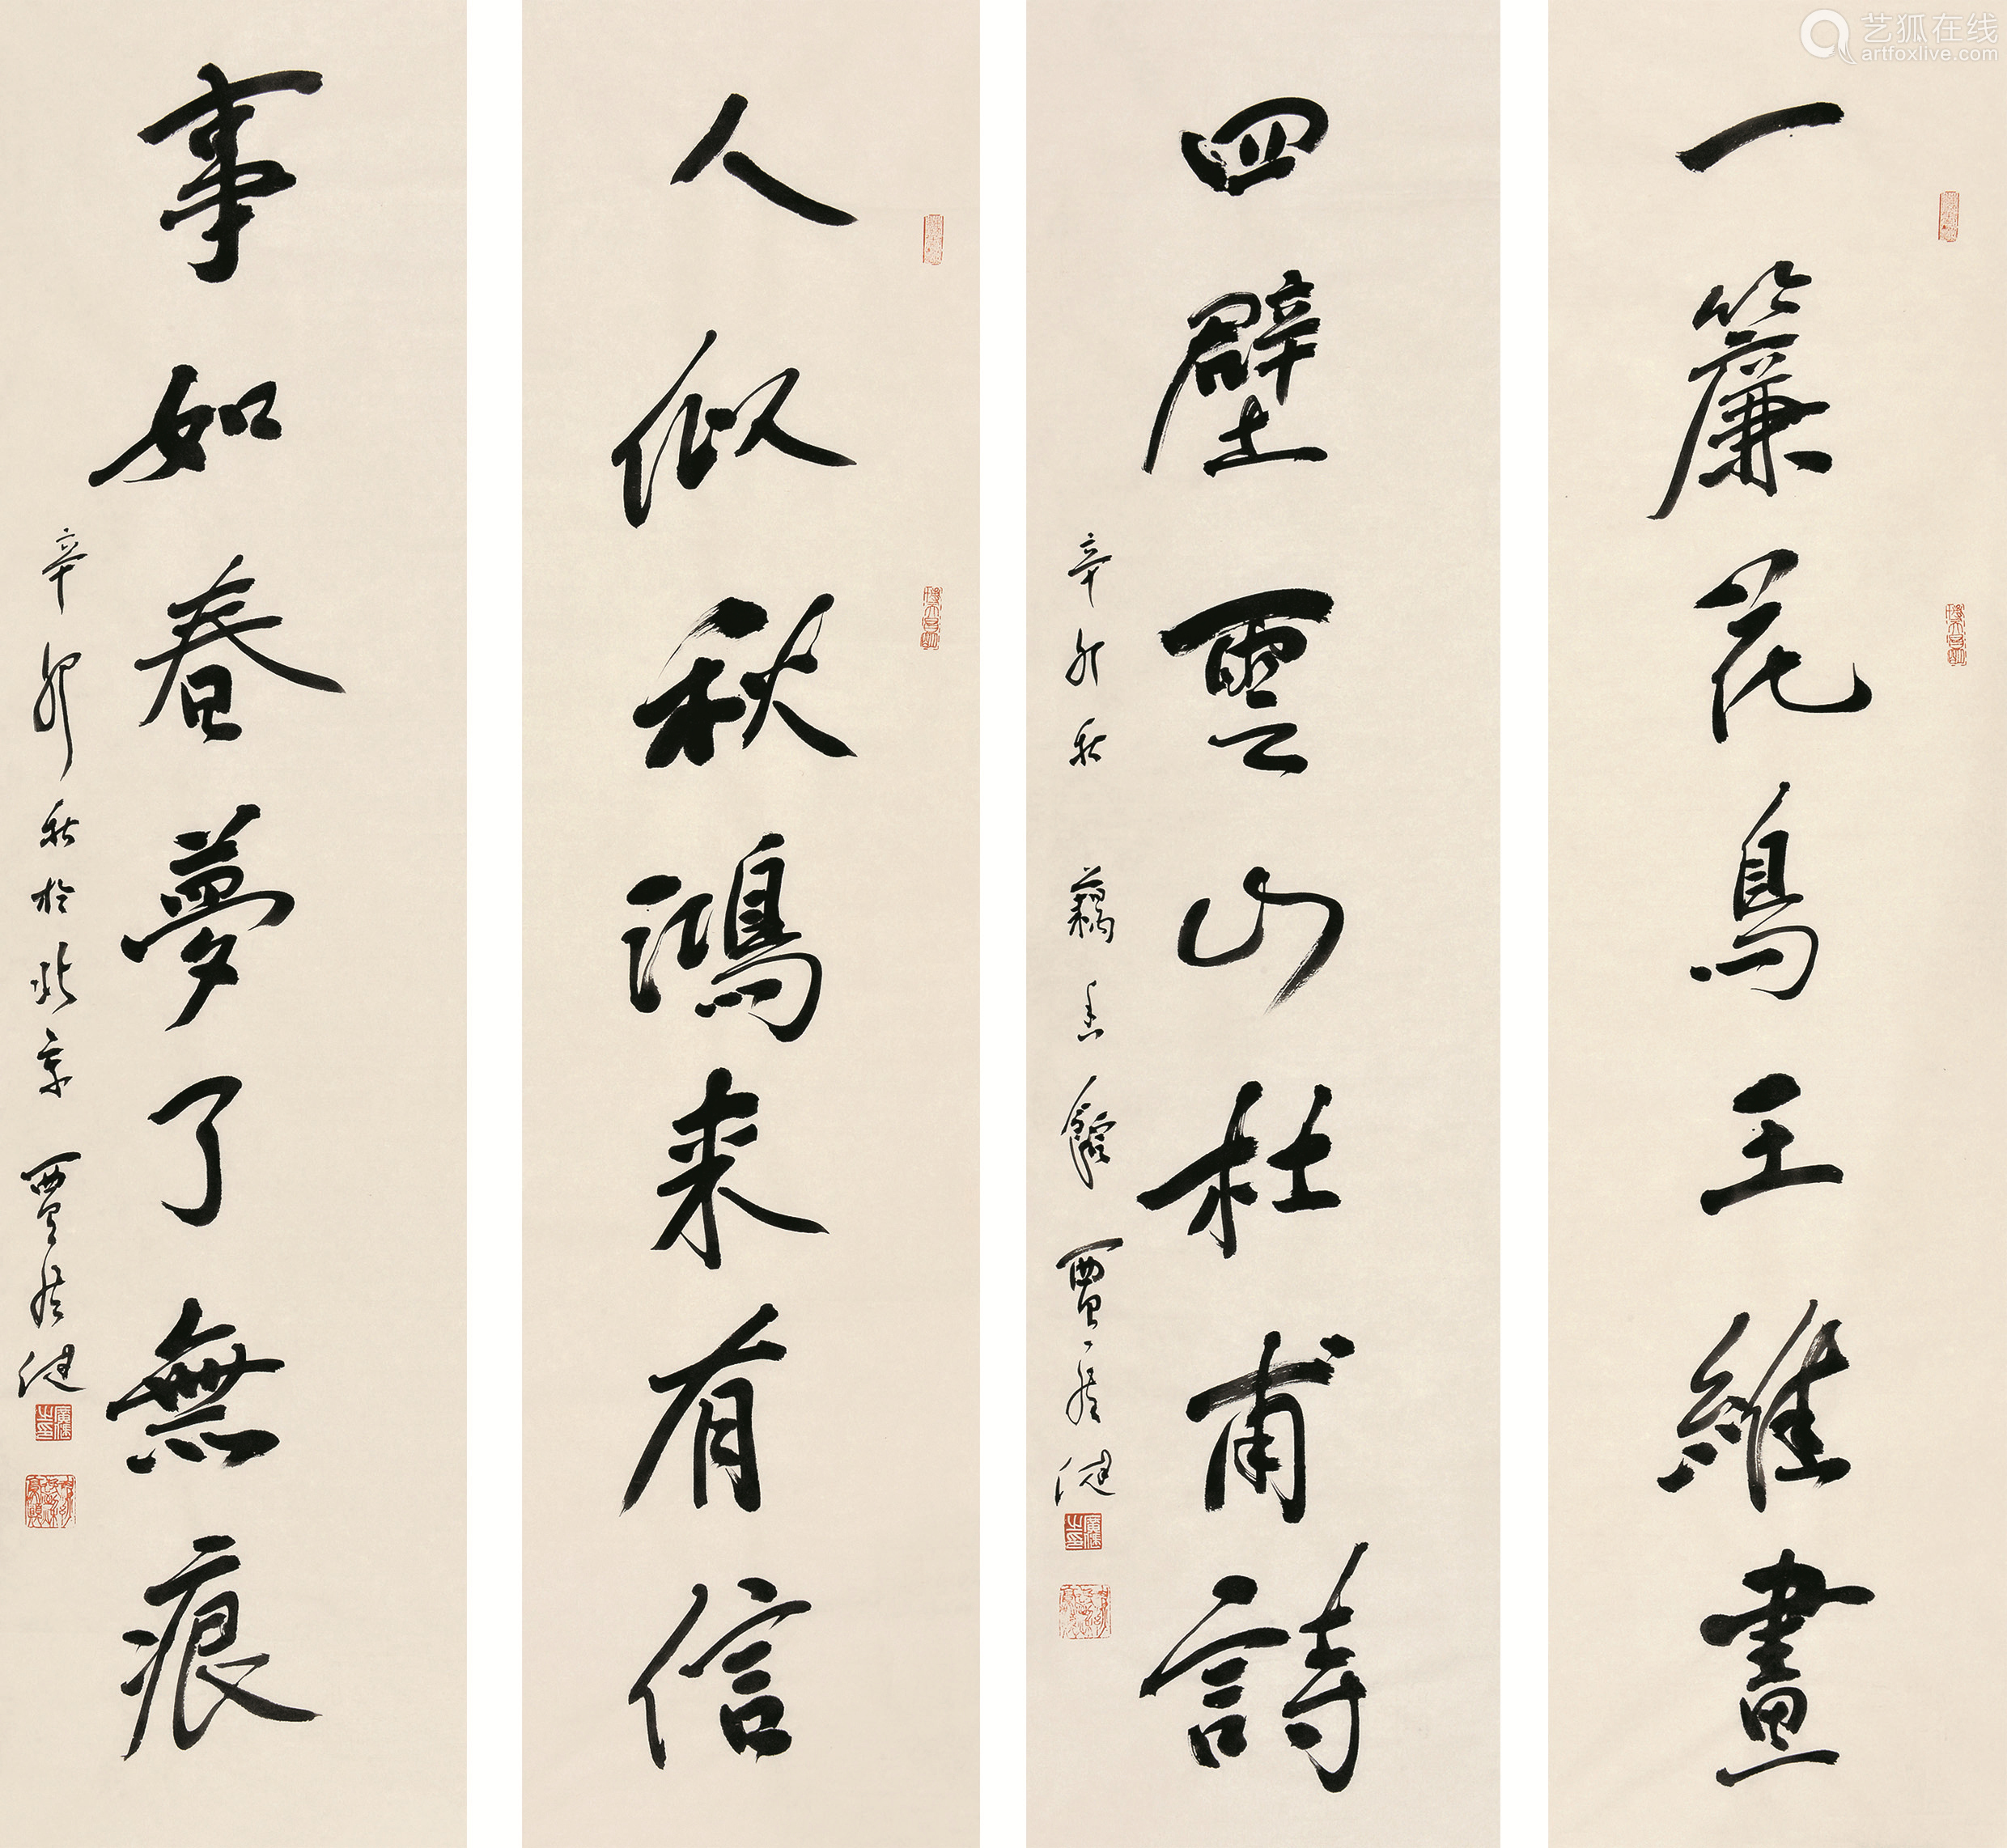 一簾花鳥王維畫
四壁雲山杜甫詩
辛卯秋 藕香館 賈廣健
人似秋鴻来有信
事如春夢了無痕
辛卯秋於北京 賈廣健
艺狐在线
artfoxlive.com